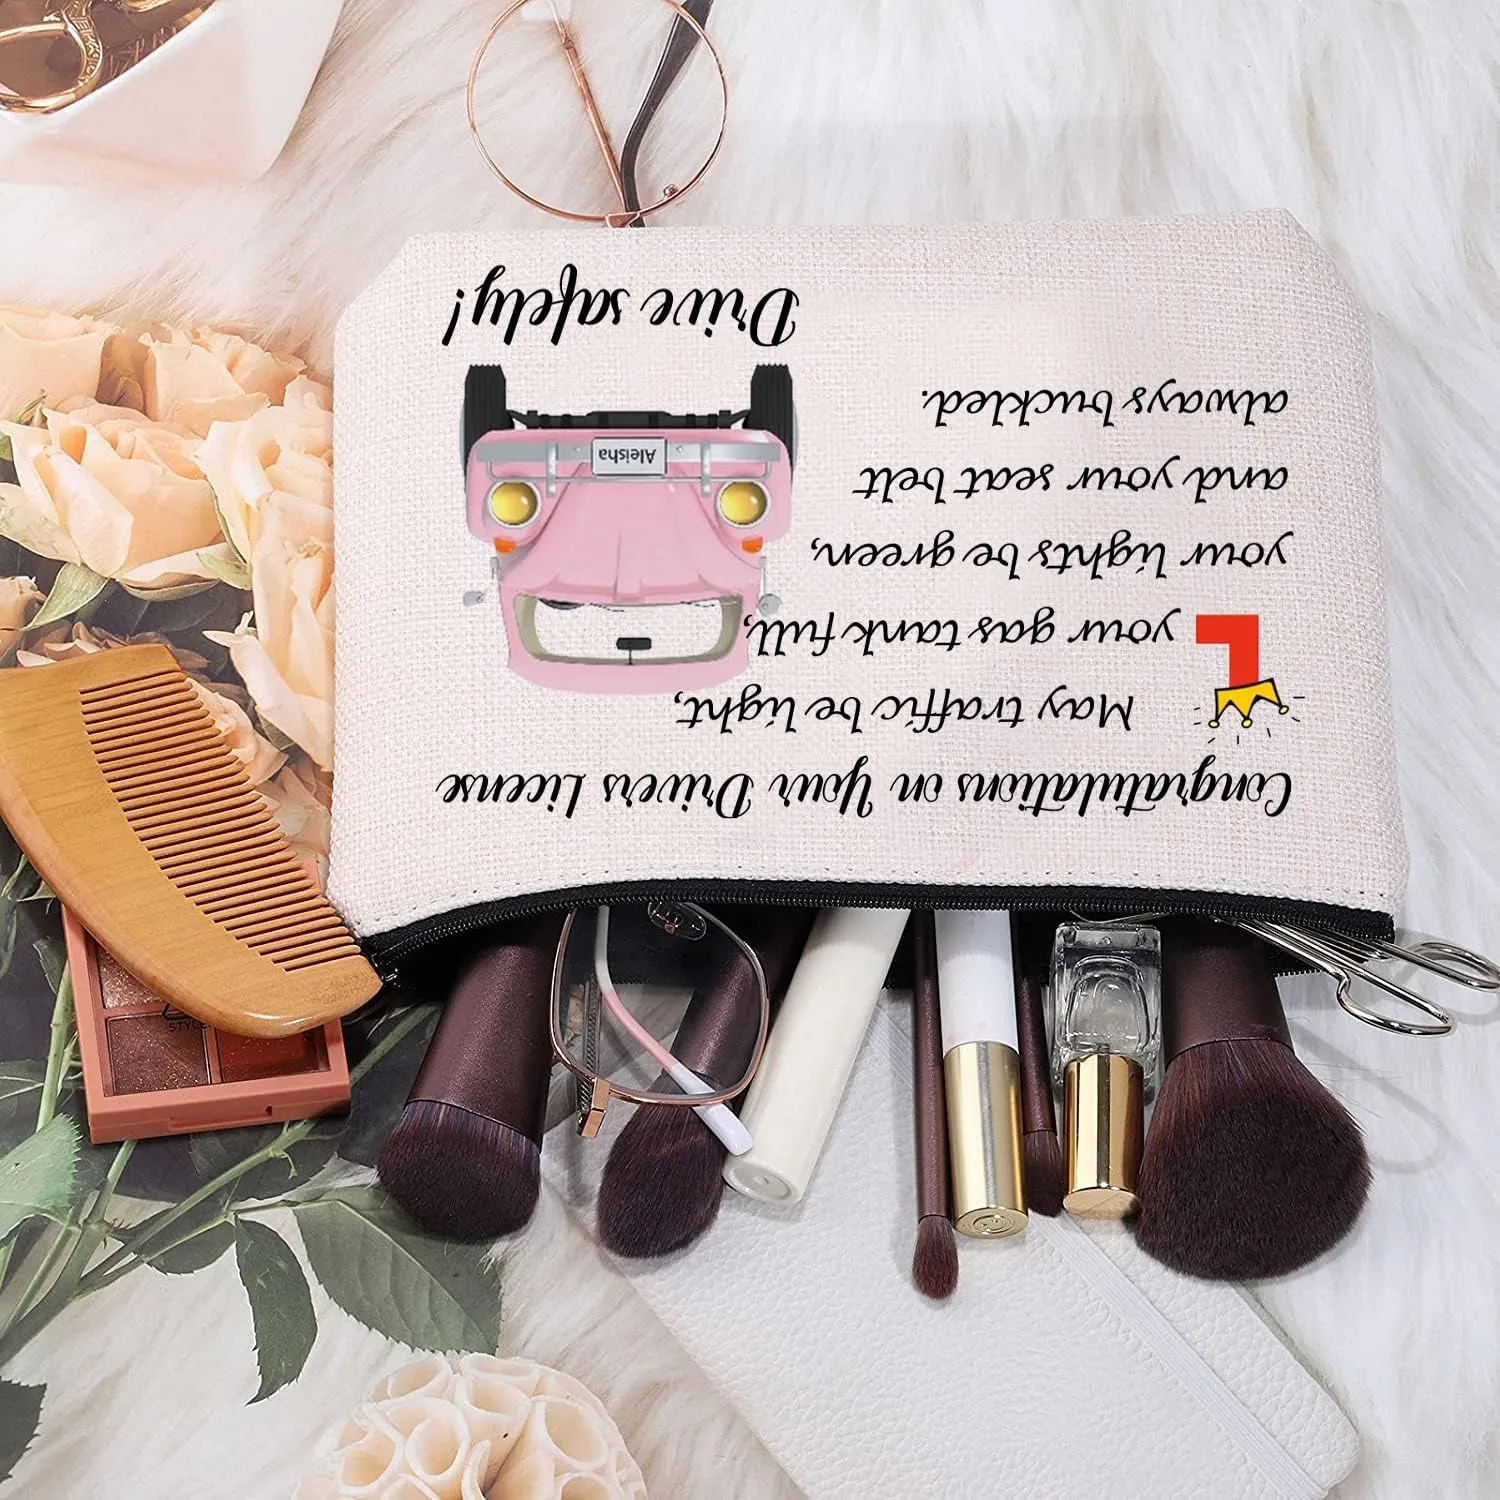 Congratulations on Your Drivers License
May traffic be light,
L
your gas tank full,
your lights be green,
and your seat belt
always buckled.
Aleisha
Drive safely!